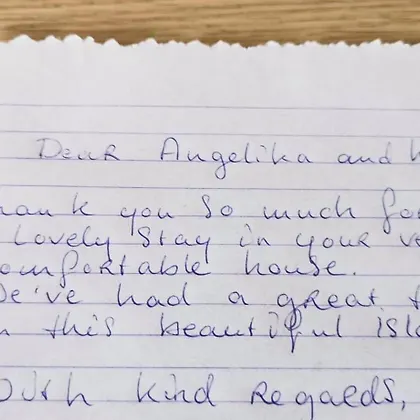 Dear Angelika and
hank you so much for
Lovely stay in your ve
omfortable house.
e've had a great t
n this beautiful isl
ith kind regards,